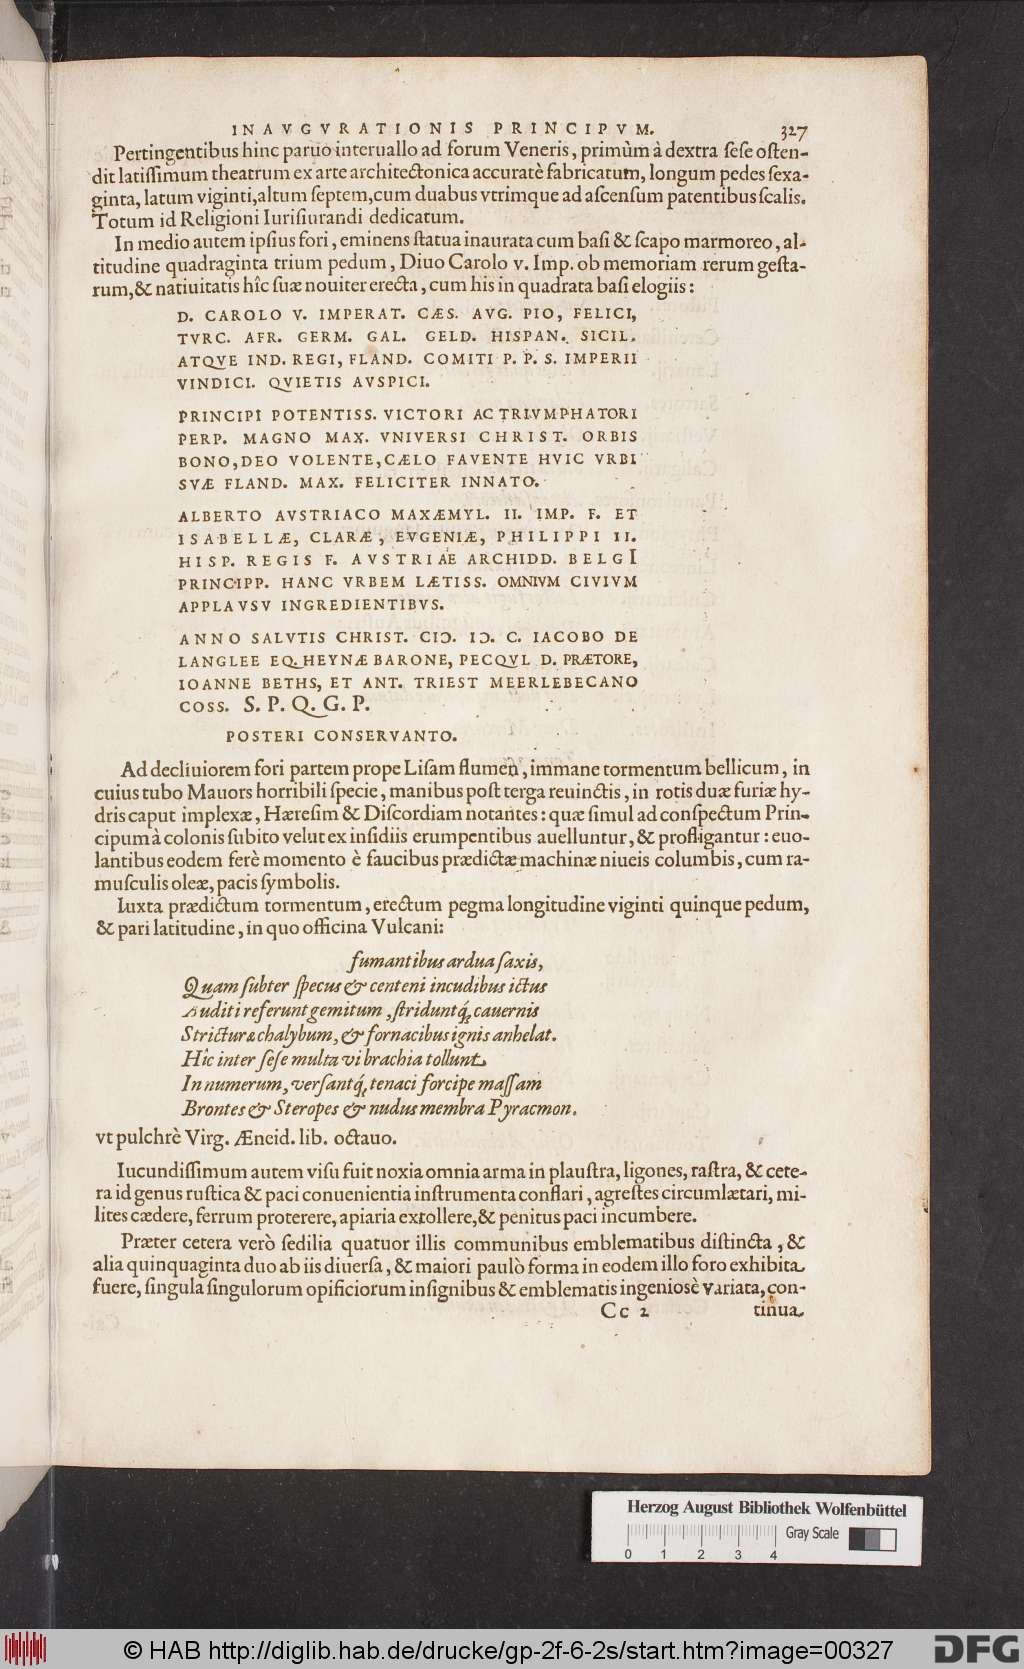 INAVGVRATIONIS PRINCIPVM. 327
Pertingentibus hinc paruo interuallo ad forum Veneris, primùm à dextra ſeſe oſten-
dit latiſſimum theatrum ex arte architectonica accuratè fabricatum, longum pedes ſexa-
ginta, latum viginti, altum ſeptem, cum duabus vtrimque ad aſcenſum patentibus ſcalis.
Totum id Religioni Iuriſiurandi dedicatum.
In medio autem ipſius fori, eminens ſtatua inaurata cum baſi & ſcapo marmoreo, al-
titudine quadraginta trium pedum, Diuo Carolo v. Imp. ob memoriam rerum geſta-
rum, & natiuitatis hîc ſuæ nouiter erecta, cum his in quadrata baſi elogiis:
D. CAROLO V. IMPERAT. CÆS. AVG. PIO, FELICI,
TVRC. AFR. GERM. GAL. GELD. HISPAN. SICIL.
ATQVE IND. REGI, FLAND. COMITI P. P. S. IMPERII
VINDICI. QVIETIS AVSPICI.
PRINCIPI POTENTISS. VICTORI AC TRIVMPHATORI
PERP. MAGNO MAX. VNIVERSI CHRIST. ORBIS
BONO, DEO VOLENTE, CÆLO FAVENTE HVIC VRBI
SVÆ FLAND. MAX. FELICITER INNATO.
ALBERTO AVSTRIACO MAXÆMYL. II. IMP. F. ET
ISABELLÆ, CLARÆ, EVGENIÆ, PHILIPPI II.
HISP. REGIS F. AVSTRIAE ARCHIDD. BELGI
PRINCIPP. HANC VRBEM LÆTISS. OMNIVM CIVIVM
APPLAVSV INGREDIENTIBVS.
ANNO SALVTIS CHRIST. CIↃ. IↃ. C. IACOBO DE
LANGLEE EQ. HEYNÆ BARONE, PECQVL D. PRÆTORE,
IOANNE BETHS, ET ANT. TRIEST MEERLEBECANO
COSS. S. P. Q. G. P.
POSTERI CONSERVANTO.
Ad decliuiorem fori partem prope Liſam flumen, immane tormentum bellicum, in
cuius tubo Mauors horribili ſpecie, manibus poſt terga reuinctis, in rotis duæ furiæ hy-
dris caput implexæ, Hæreſim & Diſcordiam notantes: quæ ſimul ad conſpectum Prin-
cipum à colonis ſubito velut ex inſidiis erumpentibus auelluntur, & profligantur: euo-
lantibus eodem ferè momento è faucibus prædictæ machinæ niueis columbis, cum ra-
muſculis oleæ, pacis ſymbolis.
Iuxta prædictum tormentum, erectum pegma longitudine viginti quinque pedum,
& pari latitudine, in quo officina Vulcani:
fumantibus ardua ſaxis,
Quam ſubter ſpecus & centeni incudibus ictus
Auditi referunt gemitum, ſtriduntq́; cauernis
Strictura chalybum, & fornacibus ignis anhelat.
Hîc inter ſeſe multa vi brachia tollunt
In numerum, verſantq́; tenaci forcipe maſſam
Brontes & Steropes & nudus membra Pyracmon.
vt pulchrè Virg. Æneid. lib. octauo.
Iucundiſſimum autem viſu fuit noxia omnia arma in plauſtra, ligones, raſtra, & cete-
ra id genus ruſtica & paci conuenientia inſtrumenta conflari, agreſtes circumlætari, mi-
lites cædere, ferrum proterere, apiaria extollere, & penitus paci incumbere.
Præter cetera verò ſedilia quatuor illis communibus emblematibus diſtincta, &
alia quinquaginta duo ab iis diuerſa, & maiori paulò forma in eodem illo foro exhibita
fuere, ſingula ſingulorum opificiorum inſignibus & emblematis ingeniosè variata, con-
Cc 2 tinua
Herzog August Bibliothek Wolfenbüttel
Gray Scale
0 1 2 3 4
© HAB http://diglib.hab.de/drucke/gp-2f-6-2s/start.htm?image=00327
DFG